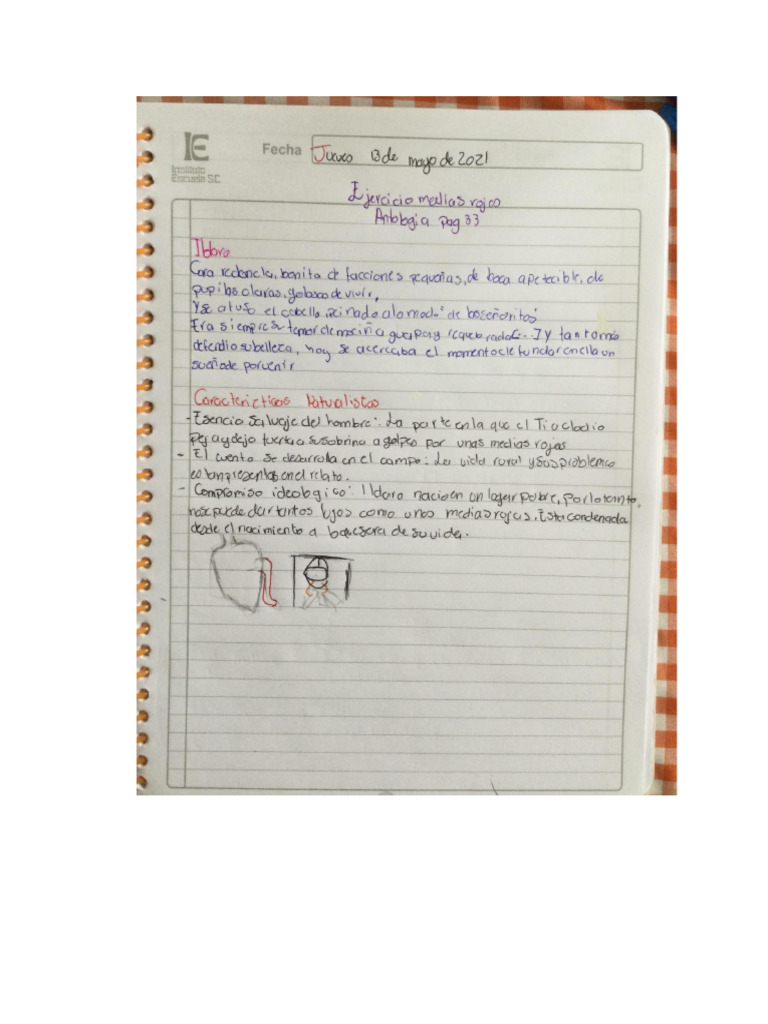 IE
Instituto
Escuela S.C.
Fecha Jueves 13 de mayo de 2021
Ejercicio medias rojas
Antologia pag 33
Ildara
Cara redonda, bonita de facciones pequeñas, de boca apetecible, de
pupilas claras, golosas de vivir,
Y se atuso el cabello peinado a la moda "de las señoritas"
Era siempre su temor de mociña guapa y requebrada... Y tanto más
defendio su belleza, hoy se acercaba el momento de fundar en ella un
sueño de porvenir
Caracteristicas Naturalistas
- Esencia Salvaje del hombre: La parte en la que el Tio clodio
pega y dejo tuerta a su sobrina a golpes por unas medias rojas
- El cuento se desarrolla en el campo: La vida rural y sus problemas
estan presentes en el relato.
- Compromiso ideologico: Ildara nacio en un lugar pobre, por lo tanto,
no se puede dar tantos lujos como unas medias rojas. Esta condenada
desde el nacimiento a de su vida.